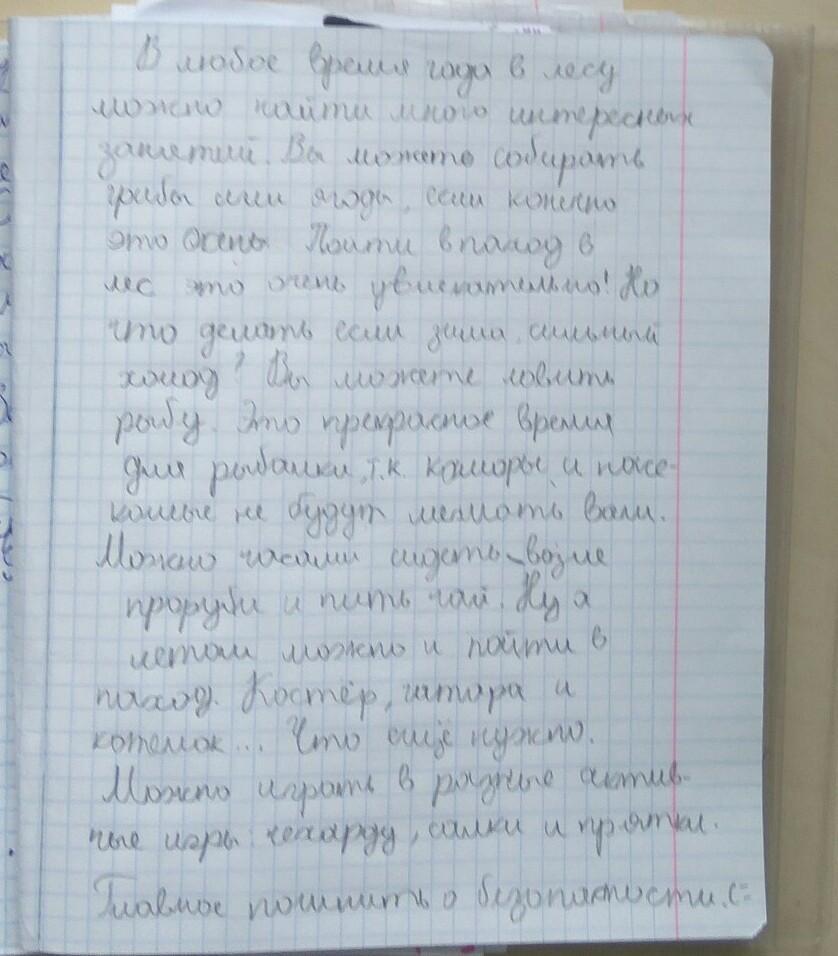 В любое время года в лесу
можно найти много интересных
занятий. Вы можете собирать
грибы или ягоды, если конечно
это осень. Пойти в поход в
лес это очень увлекательно! Но
что делать если зима, сильный
холод? Вы можете ловить
рыбу. Это прекрасное время
для рыбалки, т.к. комары и насе-
комые не будут мешать вам.
Можно часами сидеть возле
проруби и пить чай. Ну а
летом можно и пойти в
поход. Костёр, гитара и
котелок... Что ещё нужно.
Можно играть в разные актив-
ные игры: чехарду, салки и прятки.
Главное помнить о безопасности. (=